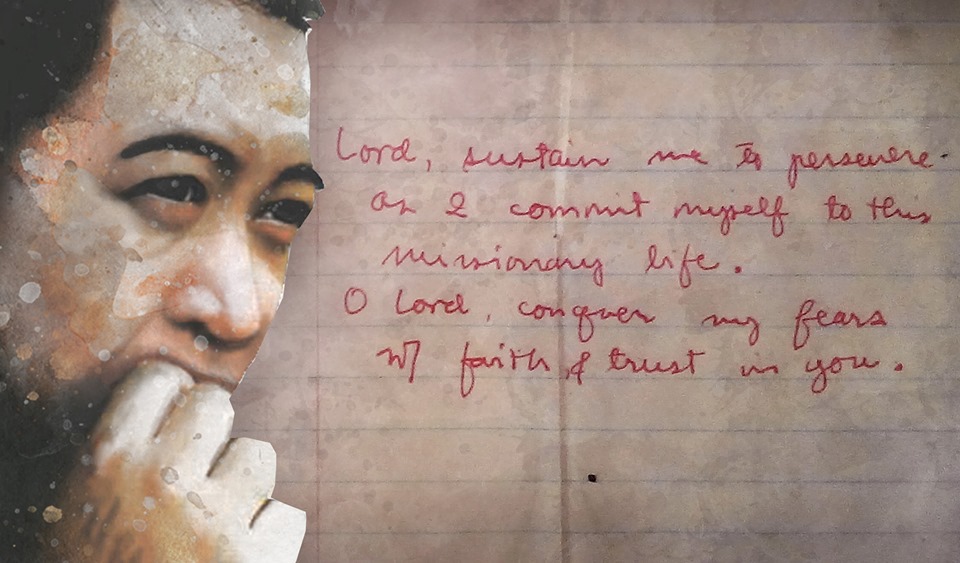 Lord, sustain me to persevere.
as I commit myself to this
missionary life.
O Lord, conquer my fears
w/ faith & trust in you.